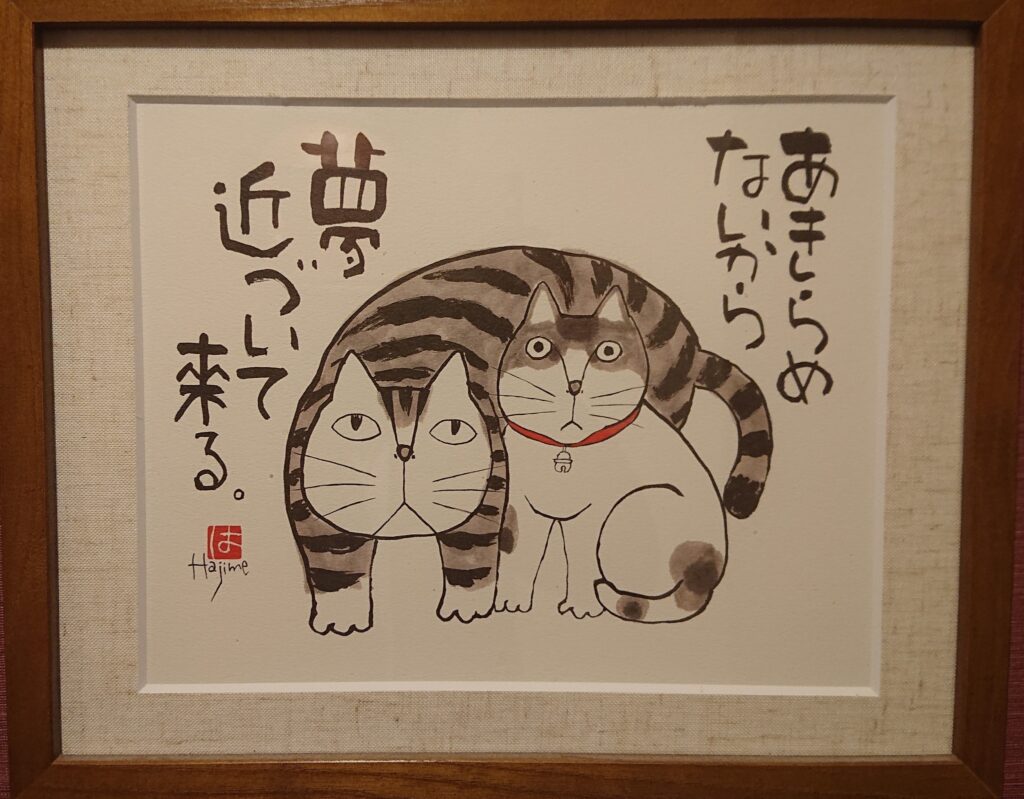 あきらめ
ないから
夢
近づいて
来る。
は
Hajime